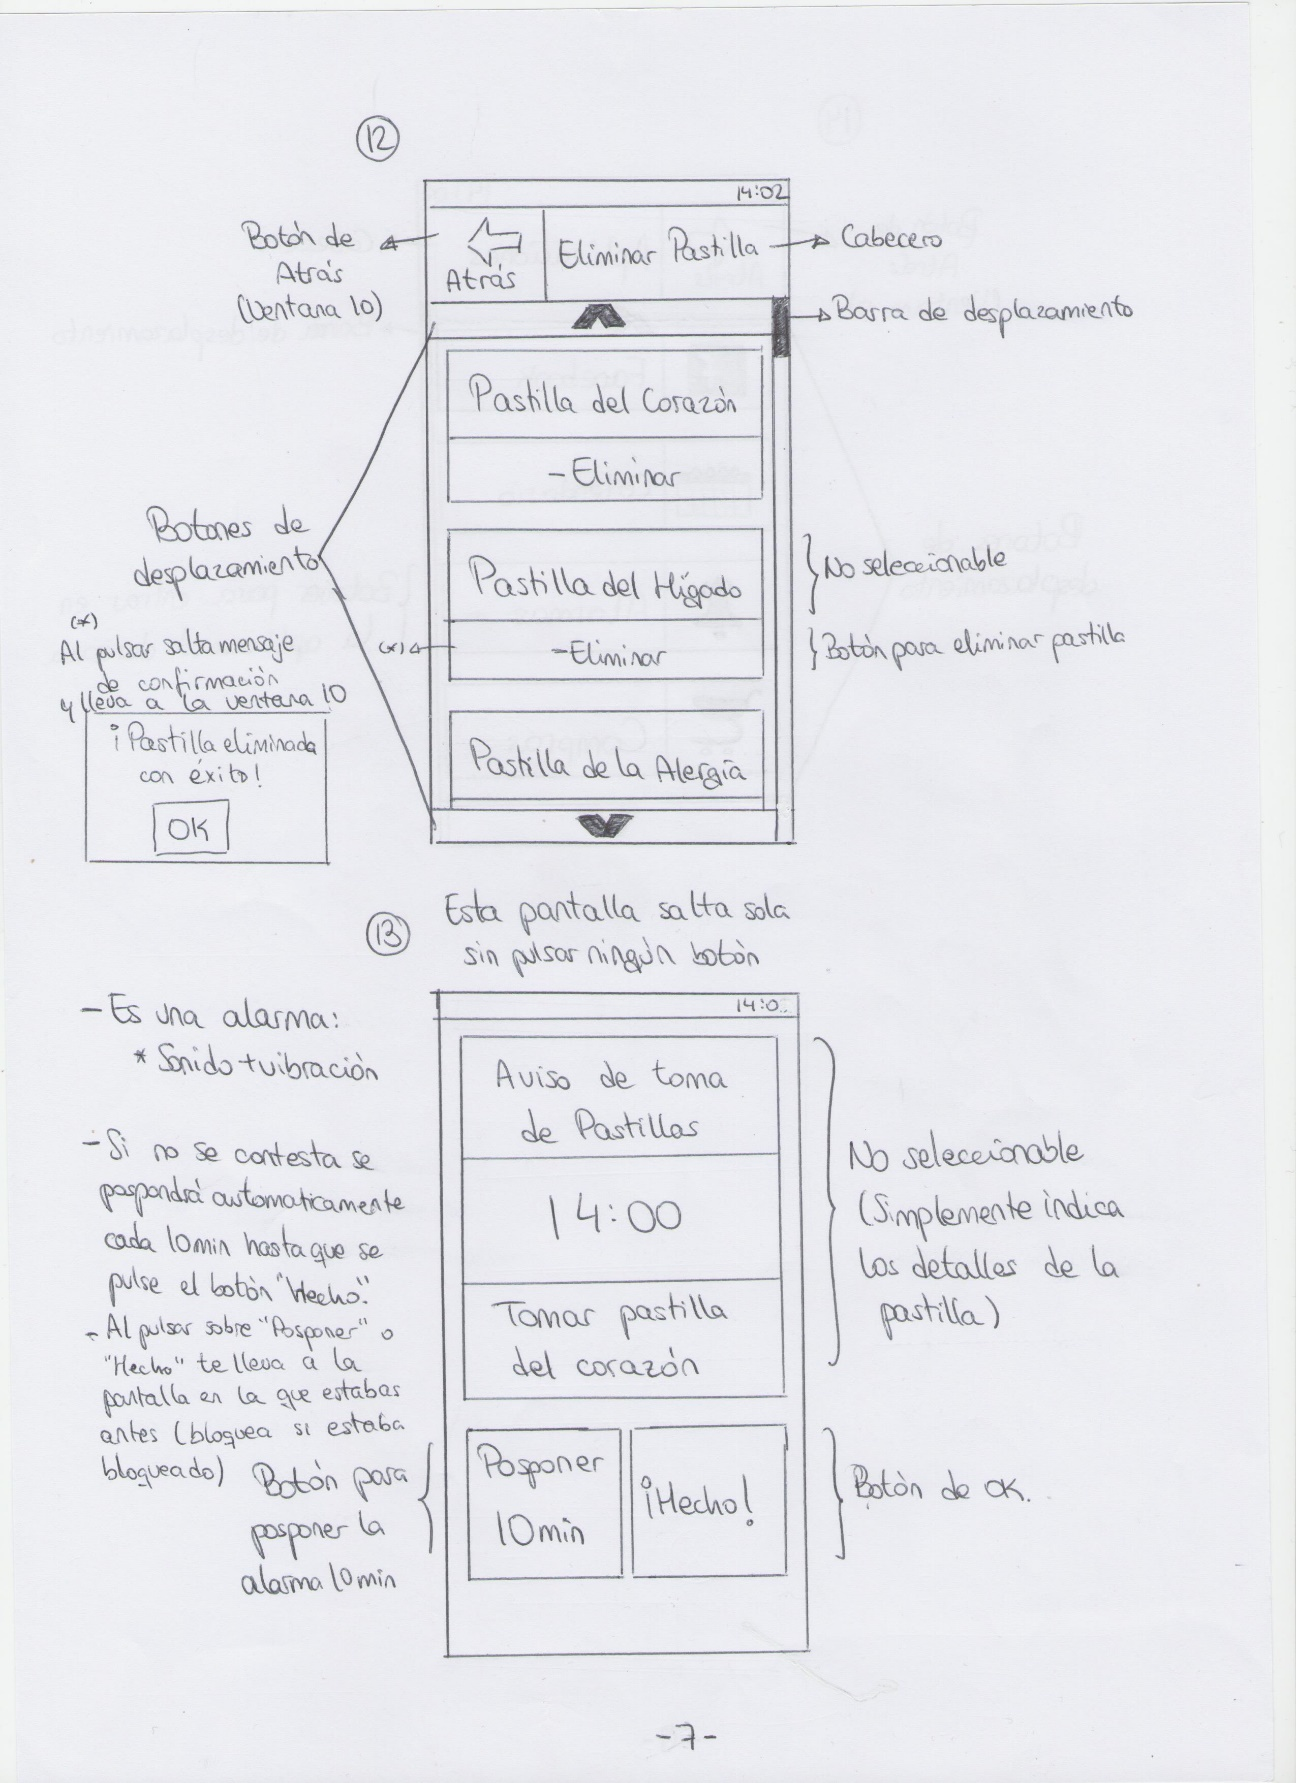 12
14:02
Botón de
Atrás
(Ventana 10)
Atrás
Eliminar Pastilla
Cabecero
Barra de desplazamiento
Pastilla del Corazón
-Eliminar
Botones de
desplazamiento
Pastilla del Hígado
-Eliminar
No seleccionable
Botón para eliminar pastilla
(*)
(*)
Al pulsar salta mensaje
de confirmación
y lleva a la ventana 10
¡Pastilla eliminada
con éxito!
OK
Pastilla de la Alergia
13
Esta pantalla salta sola
sin pulsar ningún botón
14:0
- Es una alarma:
* Sonido + vibración
- Si no se contesta se
pospondrá automaticamente
cada 10min hasta que se
pulse el botón "Hecho".
- Al pulsar sobre "Posponer" o
"Hecho" te lleva a la
pantalla en la que estabas
antes (bloquea si estaba
bloqueado)
Aviso de toma
de Pastillas
14:00
Tomar pastilla
del corazón
No seleccionable
(Simplemente indica
los detalles de la
pastilla)
Botón para
posponer la
alarma 10min
Posponer
10min
¡Hecho!
Botón de OK.
-7-